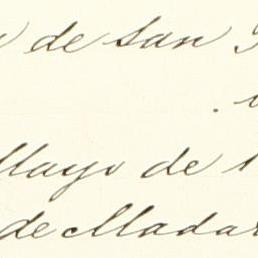 de san
Mayo de 1
de Madar